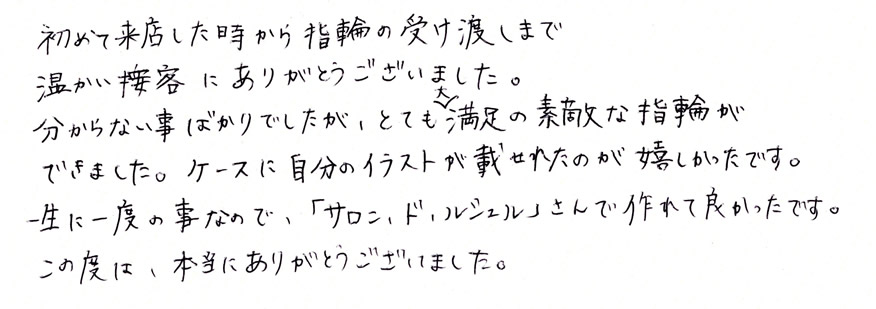 初めて来店した時から指輪の受け渡しまで
温かい接客にありがとうございました。
分からない事ばかりでしたが、とても大満足の素敵な指輪が
できました。ケースに自分のイラストが載せれたのが嬉しかったです。
一生に一度の事なので、「サロン、ド、ルシェル」さんで作れて良かったです。
この度は、本当にありがとうございました。